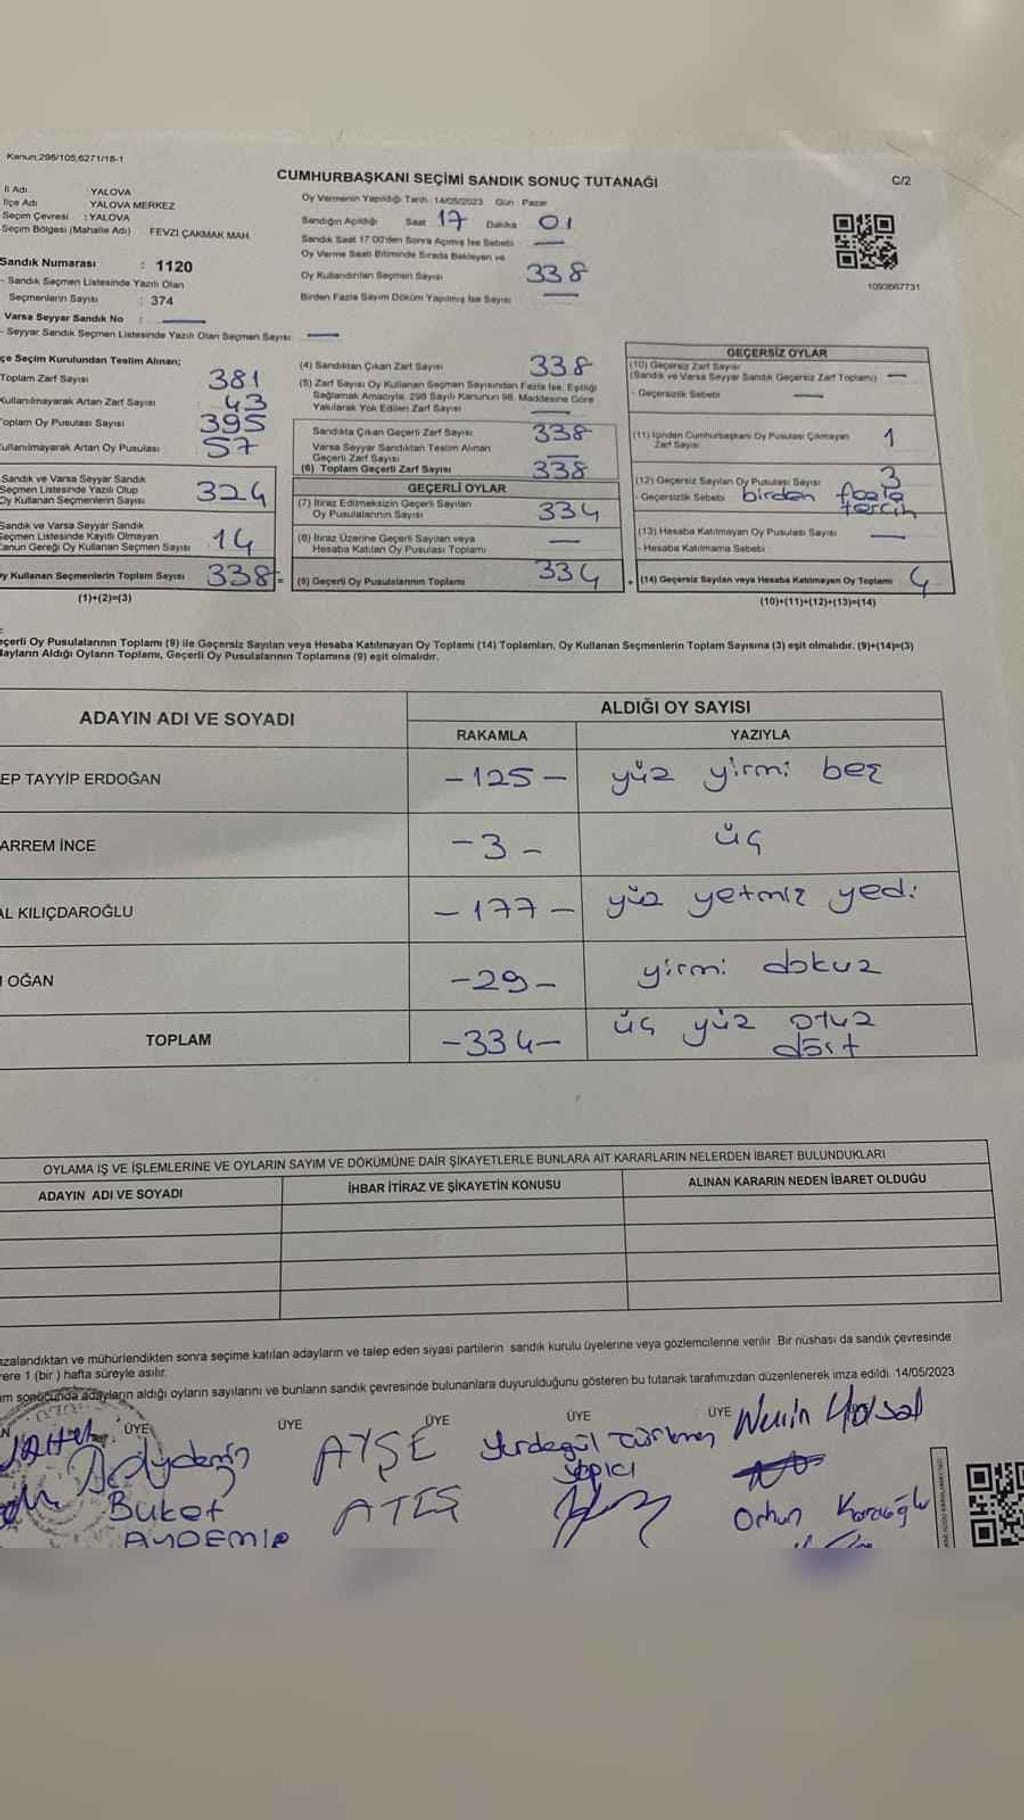 Kanun:298/105,6271/18-1
CUMHURBAŞKANI SEÇİMİ SANDIK SONUÇ TUTANAĞI
C/2
İl Adı : YALOVA
İlçe Adı : YALOVA MERKEZ
Seçim Çevresi : YALOVA
Seçim Bölgesi (Mahalle Adı) FEVZI ÇAKMAK MAH.
Sandık Numarası : 1120
- Sandık Seçmen Listesinde Yazılı Olan
Seçmenlerin Sayısı : 374
Varsa Seyyar Sandık No :
- Seyyar Sandık Seçmen Listesinde Yazılı Olan Seçmen Sayısı
Oy Vermenin Yapıldığı Tarih 14/05/2023 Gün Pazar
Sandığın Açıldığı Saat 17 Dakika 01
Sandık Saat 17:00'den Sonra Açılmış İse Sebebi
Oy Verme Saati Bitiminde Sırada Bekleyen ve
Oy Kullandırılan Seçmen Sayısı 338
Birden Fazla Sayım Döküm Yapılmış İse Sayısı
1093667731
çe Seçim Kurulundan Teslim Alınan;
Toplam Zarf Sayısı 381
Kullanılmayarak Artan Zarf Sayısı 43
Toplam Oy Pusulası Sayısı 395
Kullanılmayarak Artan Oy Pusulası 57
Sandık ve Varsa Seyyar Sandık
Seçmen Listesinde Yazılı Olup
Oy Kullanan Seçmenlerin Sayısı 324
Sandık ve Varsa Seyyar Sandık
Seçmen Listesinde Kayıtlı Olmayan
Kanun Gereği Oy Kullanan Seçmen Sayısı 14
Oy Kullanan Seçmenlerin Toplam Sayısı 338=
(1)+(2)=(3)
(4) Sandıktan Çıkan Zarf Sayısı 338
(5) Zarf Sayısı Oy Kullanan Seçmen Sayısından Fazla İse, Eşitliği
Sağlamak Amacıyla, 298 Sayılı Kanunun 98. Maddesine Göre
Yakılarak Yok Edilen Zarf Sayısı
Sandıkta Çıkan Geçerli Zarf Sayısı 338
Varsa Seyyar Sandıktan Teslim Alınan
Geçerli Zarf Sayısı
(6) Toplam Geçerli Zarf Sayısı 338
GEÇERLİ OYLAR
(7) İtiraz Edilmeksizin Geçerli Sayılan
Oy Pusulalarının Sayısı 334
(8) İtiraz Üzerine Geçerli Sayılan veya
Hesaba Katılan Oy Pusulası Toplamı
(9) Geçerli Oy Pusulalarının Toplamı 334 +
GEÇERSİZ OYLAR
(10) Geçersiz Zarf Sayısı
(Sandık ve Varsa Seyyar Sandık Geçersiz Zarf Toplamı)
- Geçersizlik Sebebi
(11) İçinden Cumhurbaşkanı Oy Pusulası Çıkmayan
Zarf Sayısı 1
(12) Geçersiz Sayılan Oy Pusulası Sayısı 3
- Geçersizlik Sebebi birden fazla
tercih
(13) Hesaba Katılmayan Oy Pusulası Sayısı
- Hesaba Katılmama Sebebi
(14) Geçersiz Sayılan veya Hesaba Katılmayan Oy Toplamı 4
(10)+(11)+(12)+(13)=(14)
eçerli Oy Pusulalarının Toplamı (9) ile Geçersiz Sayılan veya Hesaba Katılmayan Oy Toplamı (14) Toplamları, Oy Kullanan Seçmenlerin Toplam Sayısına (3) eşit olmalıdır. (9)+(14)=(3)
dayların Aldığı Oyların Toplamı, Geçerli Oy Pusulalarının Toplamına (9) eşit olmalıdır.
ADAYIN ADI VE SOYADI ALDIĞI OY SAYISI
RAKAMLA YAZIYLA
EP TAYYİP ERDOĞAN -125- yüz yirmi beş
ARREM İNCE -3- üç
AL KILIÇDAROĞLU -177- yüz yetmiş yedi
OĞAN -29- yirmi dokuz
TOPLAM -334- üç yüz otuz
dört
OYLAMA İŞ VE İŞLEMLERİNE VE OYLARIN SAYIM VE DÖKÜMÜNE DAİR ŞİKAYETLERLE BUNLARA AİT KARARLARIN NELERDEN İBARET BULUNDUKLARI
ADAYIN ADI VE SOYADI İHBAR İTİRAZ VE ŞİKAYETİN KONUSU ALINAN KARARIN NEDEN İBARET OLDUĞU
mzalandıktan ve mühürlendikten sonra seçime katılan adayların ve talep eden siyasi partilerin sandık kurulu üyelerine veya gözlemcilerine verilir. Bir nüshası da sandık çevresinde
yere 1 (bir) hafta süreyle asılır.
ım sonucunda adayların aldığı oyların sayılarını ve bunların sandık çevresinde bulunanlara duyurulduğunu gösteren bu tutanak tarafımızdan düzenlenerek imza edildi. 14/05/2023
ÜYE ÜYE ÜYE ÜYE ÜYE
Aydemir
Buket
AYDEMİR
AYŞE
ATEŞ
Yurdagül Türkmen
Yapıcı
Orhun Karaoğlu